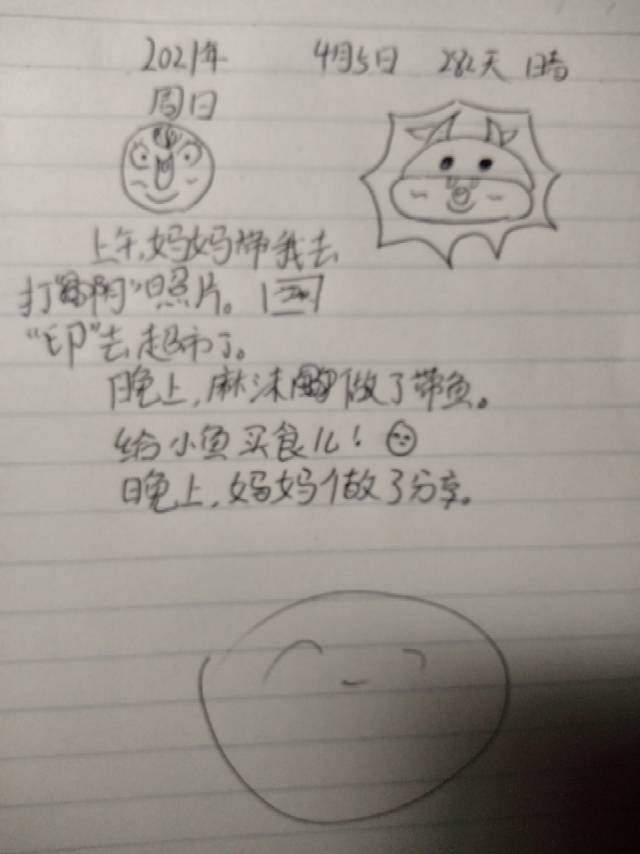 2021年 4月5日 282天 晴
周日
上午,妈妈带我去
打"印"照片。
"印"去超市了。
晚上,麻沫做了带鱼。
给小鱼买食儿!
晚上,妈妈做了分享。